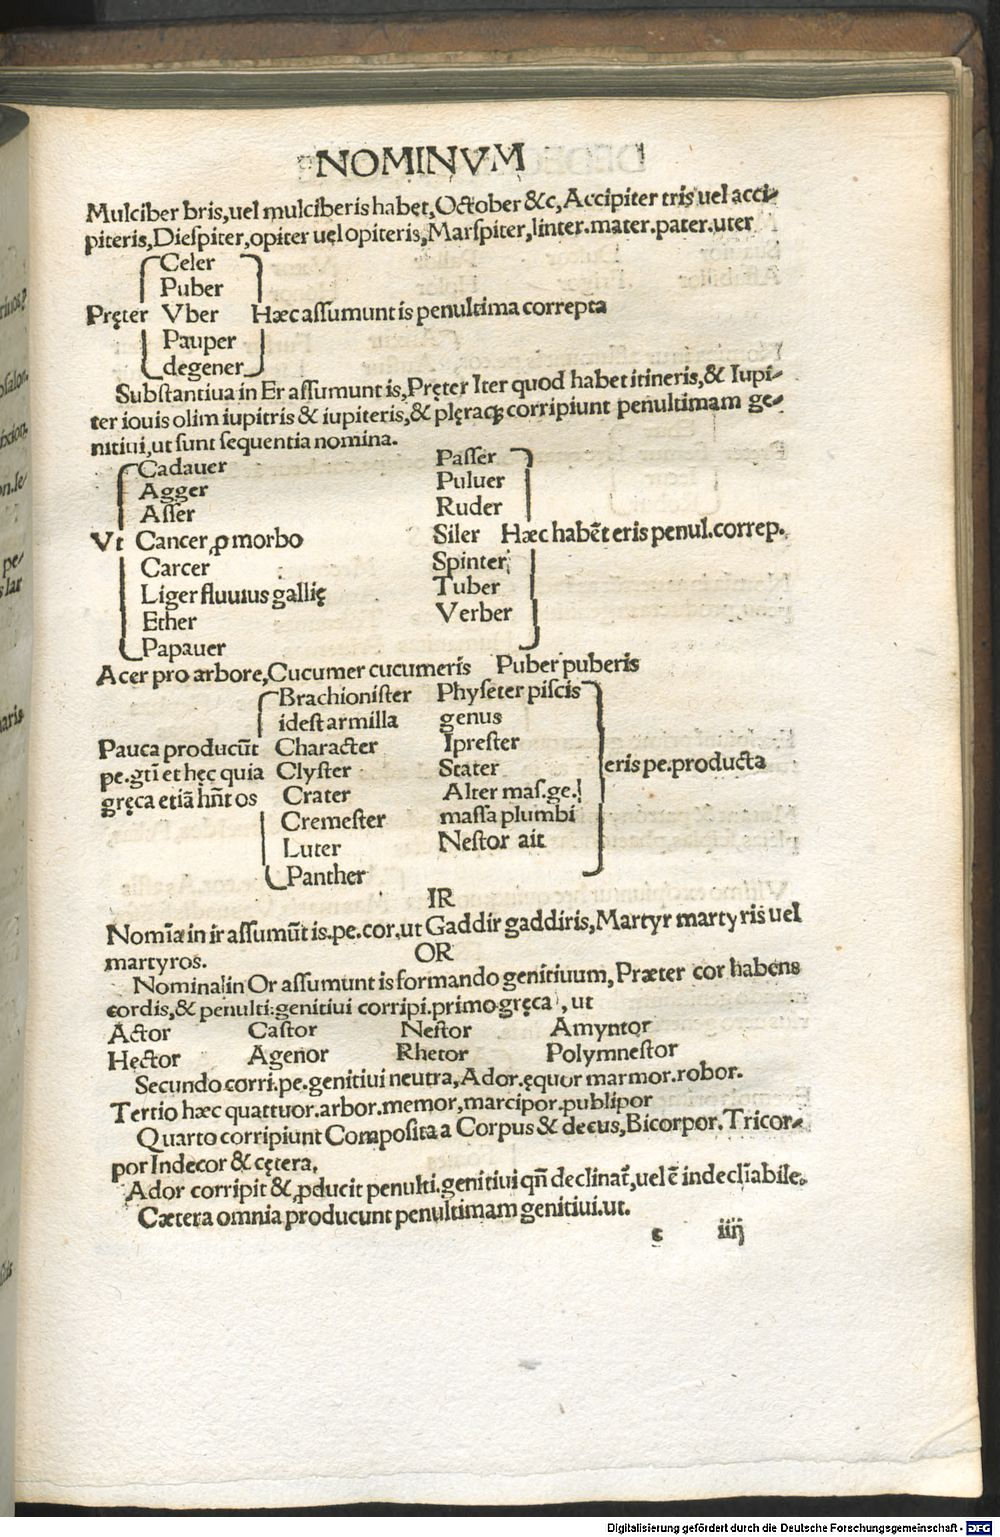 NOMINVM
Mulciber bris,uel mulciberis habet,October &c,Accipiter tris uel acci-
piteris,Diespiter,opiter uel opiteris,Marspiter,linter.mater.pater.uter
Celer
Puber
Pręter Vber Hæc assumunt is penultima correpta
Pauper
degener
Substantiua in Er assumunt is,Pręter Iter quod habet itineris,& Iupi-
ter iouis olim iupitris & iupiteris,& plęraqꝫ corripiunt penultimam ge-
nitiui,ut sunt sequentia nomina.
Cadauer Passer
Agger Puluer
Asser Ruder
Vt Cancer,ꝓ morbo Siler Hæc habēt eris penul.correp.
Carcer Spinter
Liger fluuius gallię Tuber
Ether Verber
Papauer
Acer pro arbore,Cucumer cucumeris Puber puberis
Brachionister Physeter piscis
idest armilla genus
Pauca producūt Character Iprester
pe.gti̅ et hęc quia Clyster Stater eris pe.producta
gręca etiā hn̄t os Crater Alter mas.ge.
Cremester massa plumbi
Luter Nestor ait
Panther
IR
Nomīa in ir assumūt is.pe.cor.ut Gaddir gaddiris,Martyr martyris uel
martyros.
OR
Nominalin Or assumunt is formando genitiuum,Præter cor habens
cordis,& penulti:genitiui corripi.primo gręca,ut
Actor Castor Nestor Amyntor
Hector Agenor Rhetor Polymnestor
Secundo corri.pe.genitiui neutra,Ador.ęquor marmor.robor.
Tertio hæc quattuor.arbor.memor,marcipor.publipor
Quarto corripiunt Composita a Corpus & decus,Bicorpor.Tricor-
por Indecor & cętera.
Ador corripit & ꝓducit penulti.genitiui qn̄ declinat̄,uel ē indecli̅abile.
Cætera omnia producunt penultimam genitiui.ut.
c iiij
Digitalisierung gefördert durch die Deutsche Forschungsgemeinschaft - DFG